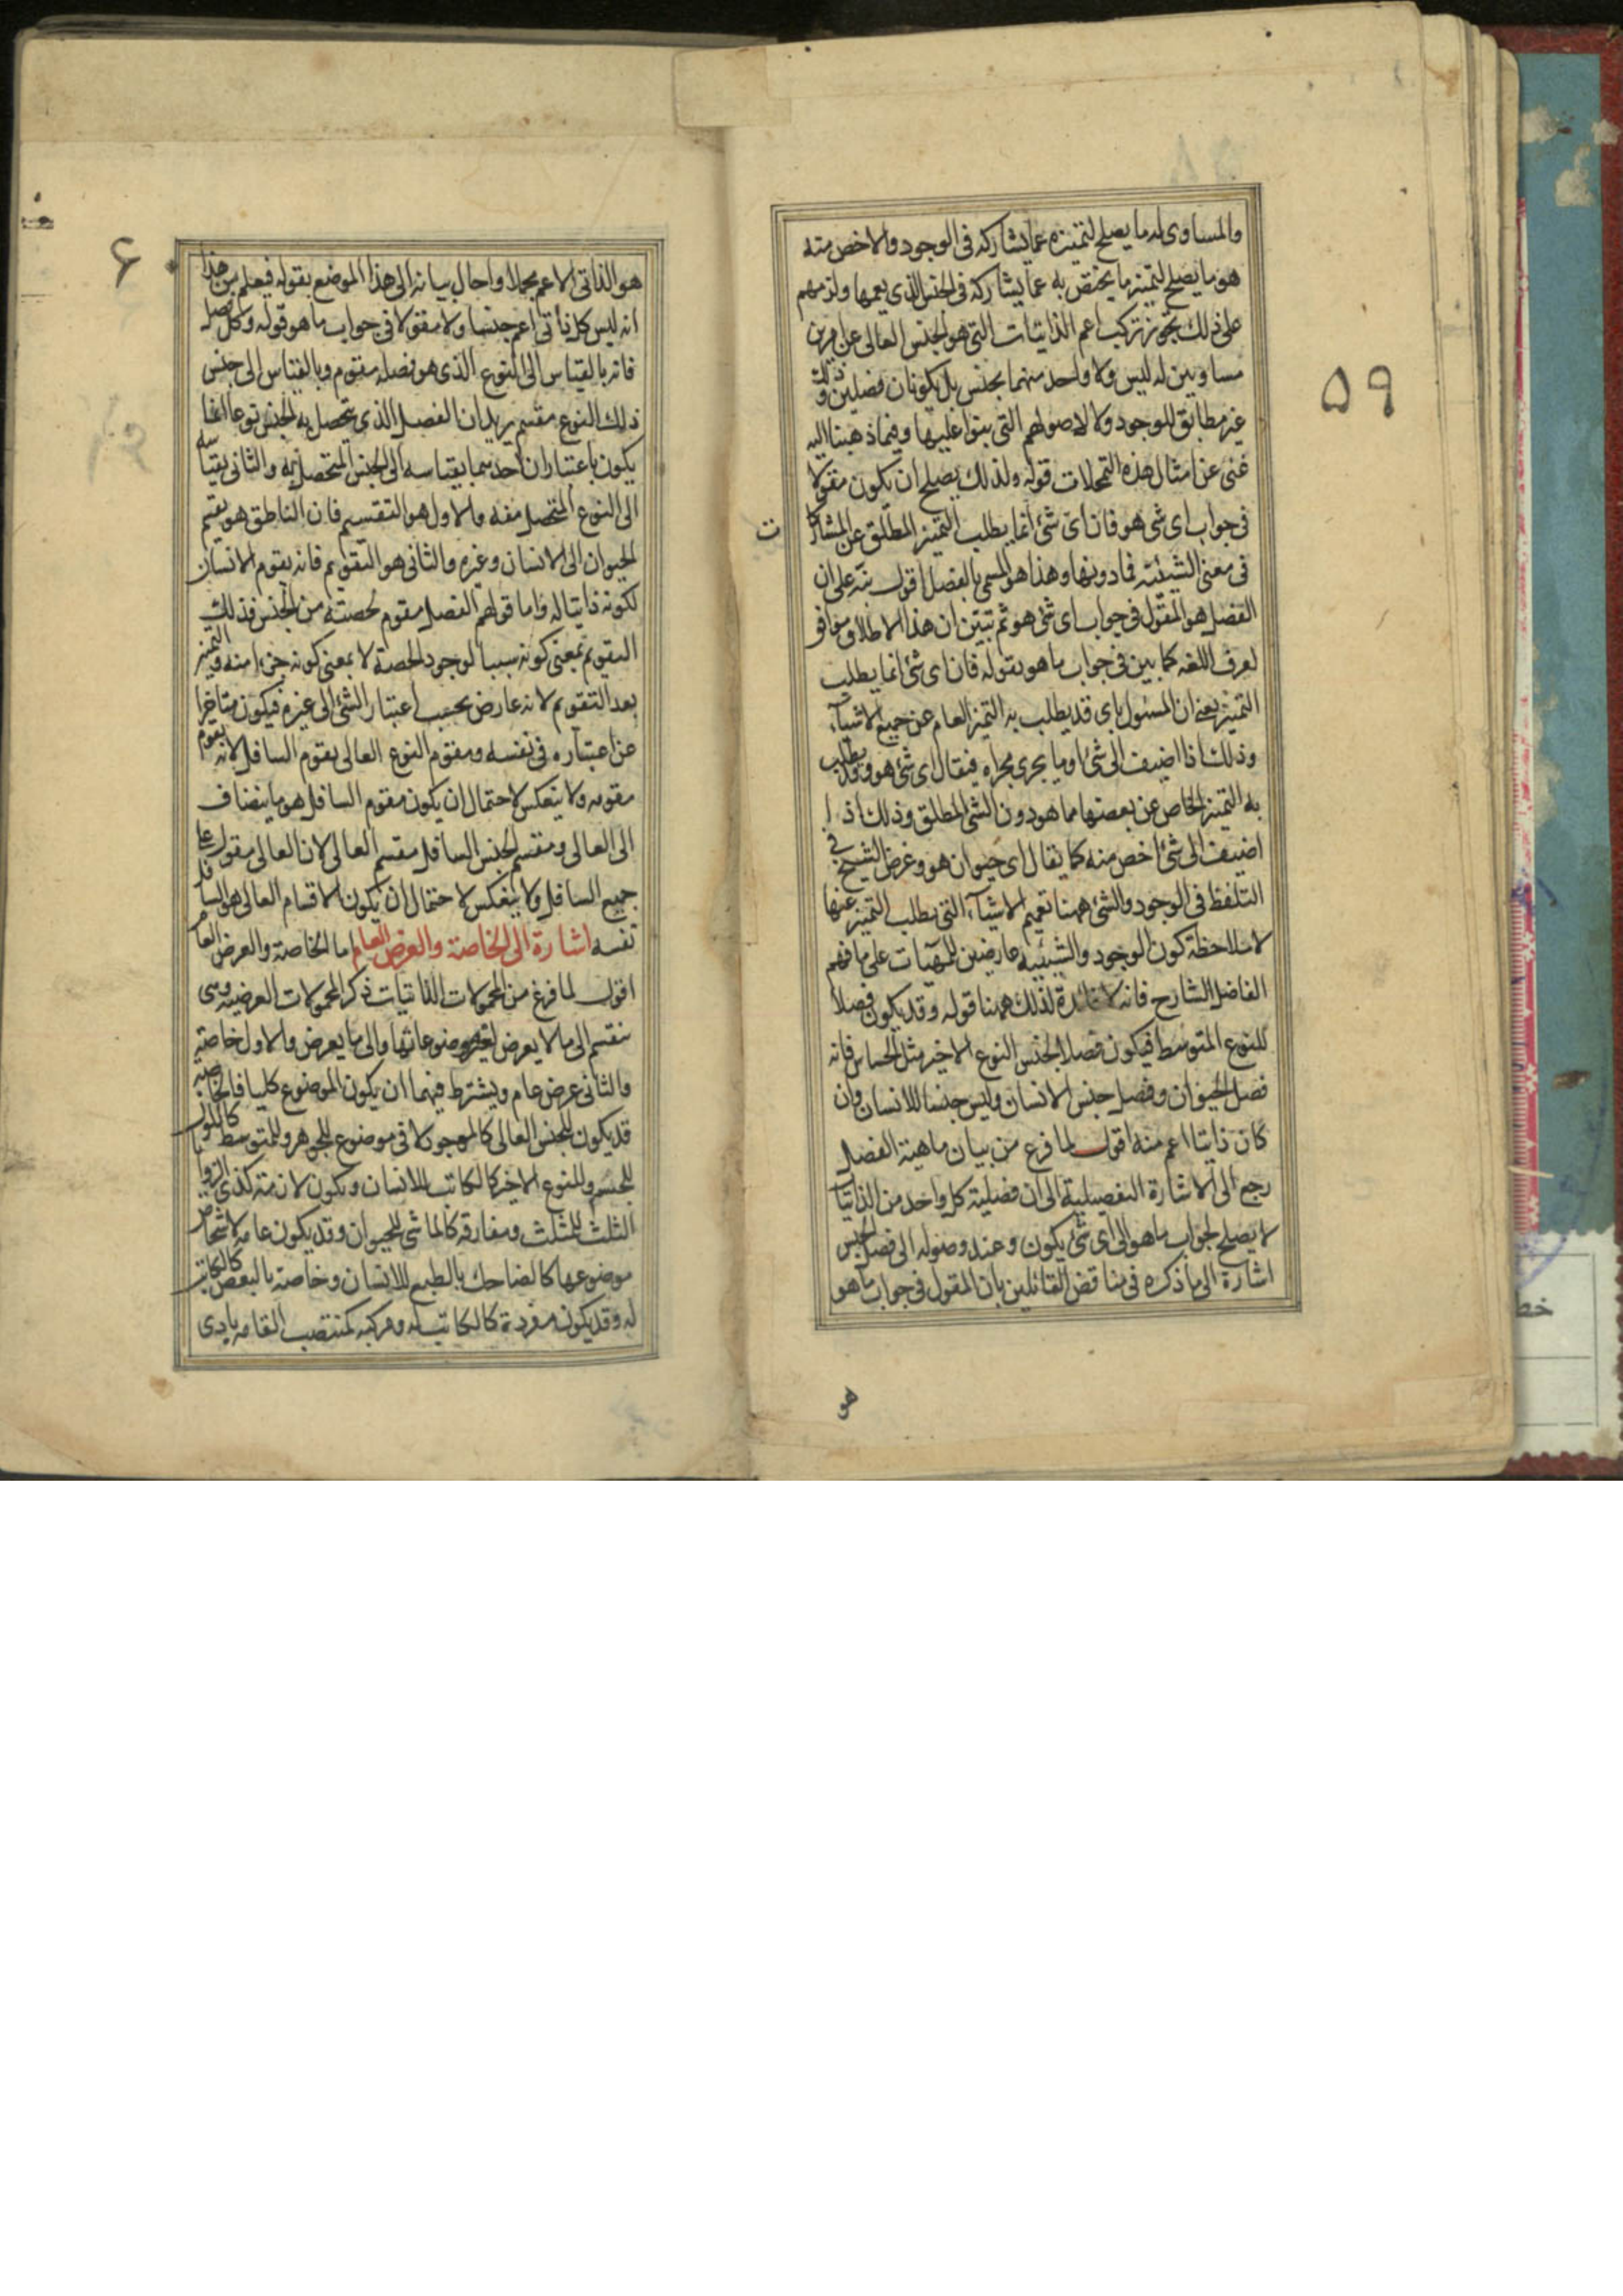 ۵۹
والمساوى له ما يصلح لتميزه عما يشاركه فى الوجود والاخص منه
هو ما يصلح لتميز ما يختص به عما يشاركه فى الجنس الذى يعمها ولزمهم
على ذلك تجويز تركب اعم الذاتيات التى هو الجنس العالى عن امرين
مساويين له ليس ولا واحد منهما بجنس بل يكونان فصلين وذلك
غير مطابق للوجود ولا لاصولهم التى بنوا عليها وفيما ذهبنا اليه
غنى عن امثال هذه التمحلات قوله ولذلك يصلح ان يكون مقولا
فى جواب اى شى هو فان اى شئ انما يطلب التميز المطلق عن المشاركا
ت
فى معنى الشيئية فما دونها وهذا هو المسمى بالفصل اقول نبه على ان
الفصل هو المقول فى جواب اى شئ هو ثم تبين ان هذا الاطلاق موافق
لعرف اللغه كما بين فى جواب ما هو بقوله فان اى شئ انما يطلب
التميز يعنى ان المسئول باى قد يطلب به التميز العام عن جميع الاشياء
وذلك اذا اضيف الى شئ او ما يجرى مجراه فيقال اى شئ هو وقد يطلب
به التميز الخاص عن بعضها مما هو دون الشئ المطلق وذلك اذا
اضيف الى شئ اخص منه كما يقال اى حيوان هو وغرض الشيخ فى
التلفظ فى الوجود والشئ ههنا تعميم الاشياء التى يطلب التميز عنها
لا ملاحظة كون الوجود والشيئيه عارضين للمهيات على ما فهم
الفاضل الشارح فانه لا فائدة لذلك ههنا قوله وقد يكون فصلا
للنوع المتوسط فيكون فصلا لجنس النوع الاخير مثل الحساس فانه
فصل الحيوان وفصل جنس الانسان وليس جنسا للانسان وان
كان ذاتيا اعم منه اقول لما فرغ من بيان ماهية الفصل
رجع الى الاشارة التفصيلية الى ان فصلية كل واحد من الذاتيات
لا يصلح لجواب ما هو الى اى شئ يكون وعند وصوله الى فصل الجنس
اشارة الى ما ذكره فى مناقض القائلين بان المقول فى جواب ما هو
هو
۶
هو الذاتى الاعم مجملا واحال بيانه الى هذا الموضع بقوله فيعلم من هذا
انه ليس كل ذاتى اعم جنسا ولا مقولا فى جواب ما هو قوله وكل فصل
فانه بالقياس الى النوع الذى هو فصله مقوم وبالقياس الى جنس
ذلك النوع مقسم يريد ان الفصل الذى يتحصل به الجنس نوعا انما
يكون باعتباران احدهما بقياسه الى الجنس المتحصل به والثانى بقياسه
الى النوع المتحصل منه والاول هو التقسيم فان الناطق هو يقسم
الحيوان الى الانسان وغيره والثانى هو التقويم فانه يقوم الانسان
لكونه ذاتيا له واما قولهم الفصل مقوم لحصته من الجنس فذلك
التقويم بمعنى كونه سببا لوجود الحصة لا بمعنى كونه جزءا منه والتميز
بعد التقويم لانه عارض بحسب اعتبار الشئ الى غيره فيكون متاخرا
عن اعتباره فى نفسه ومقوم النوع العالى يقوم السافل لانه يقوم
مقومه ولا ينعكس لاحتمال ان يكون مقوم السافل هو ما ينضاف
الى العالى ومقسم الجنس السافل مقسم العالى لان العالى مقول على
جميع السافل ولا ينعكس لاحتمال ان يكون الاقسام العالى هو السافل
نفسه اشارة الى الخاصة والعرض العام اما الخاصة والعرض العام
اقول لما فرغ من المحمولات الذاتيات ذكر المحمولات العرضيه وهى
تنقسم الى ما لا يعرض لغير موضوعاتها والى ما يعرض والاول خاصة
والثانى عرض عام ويشترط فيهما ان يكون الموضوع كليا فالخاصة
قد يكون للجنس العالى كالموجود لا فى موضوع للجوهر وللمتوسط كاللون
للجسم وللنوع الاخير كالكاتب للانسان ويكون لازمة كذى الزوايا
الثلث للمثلث ومفارقه كالماشى للحيوان وقد يكون عامه لاشخاص
موضوعها كالضاحك بالطبع للانسان وخاصة بالبعض كالكاتب
له وقد يكون مفردة كالكاتب له ومركبه كمنتصب القامه بادى